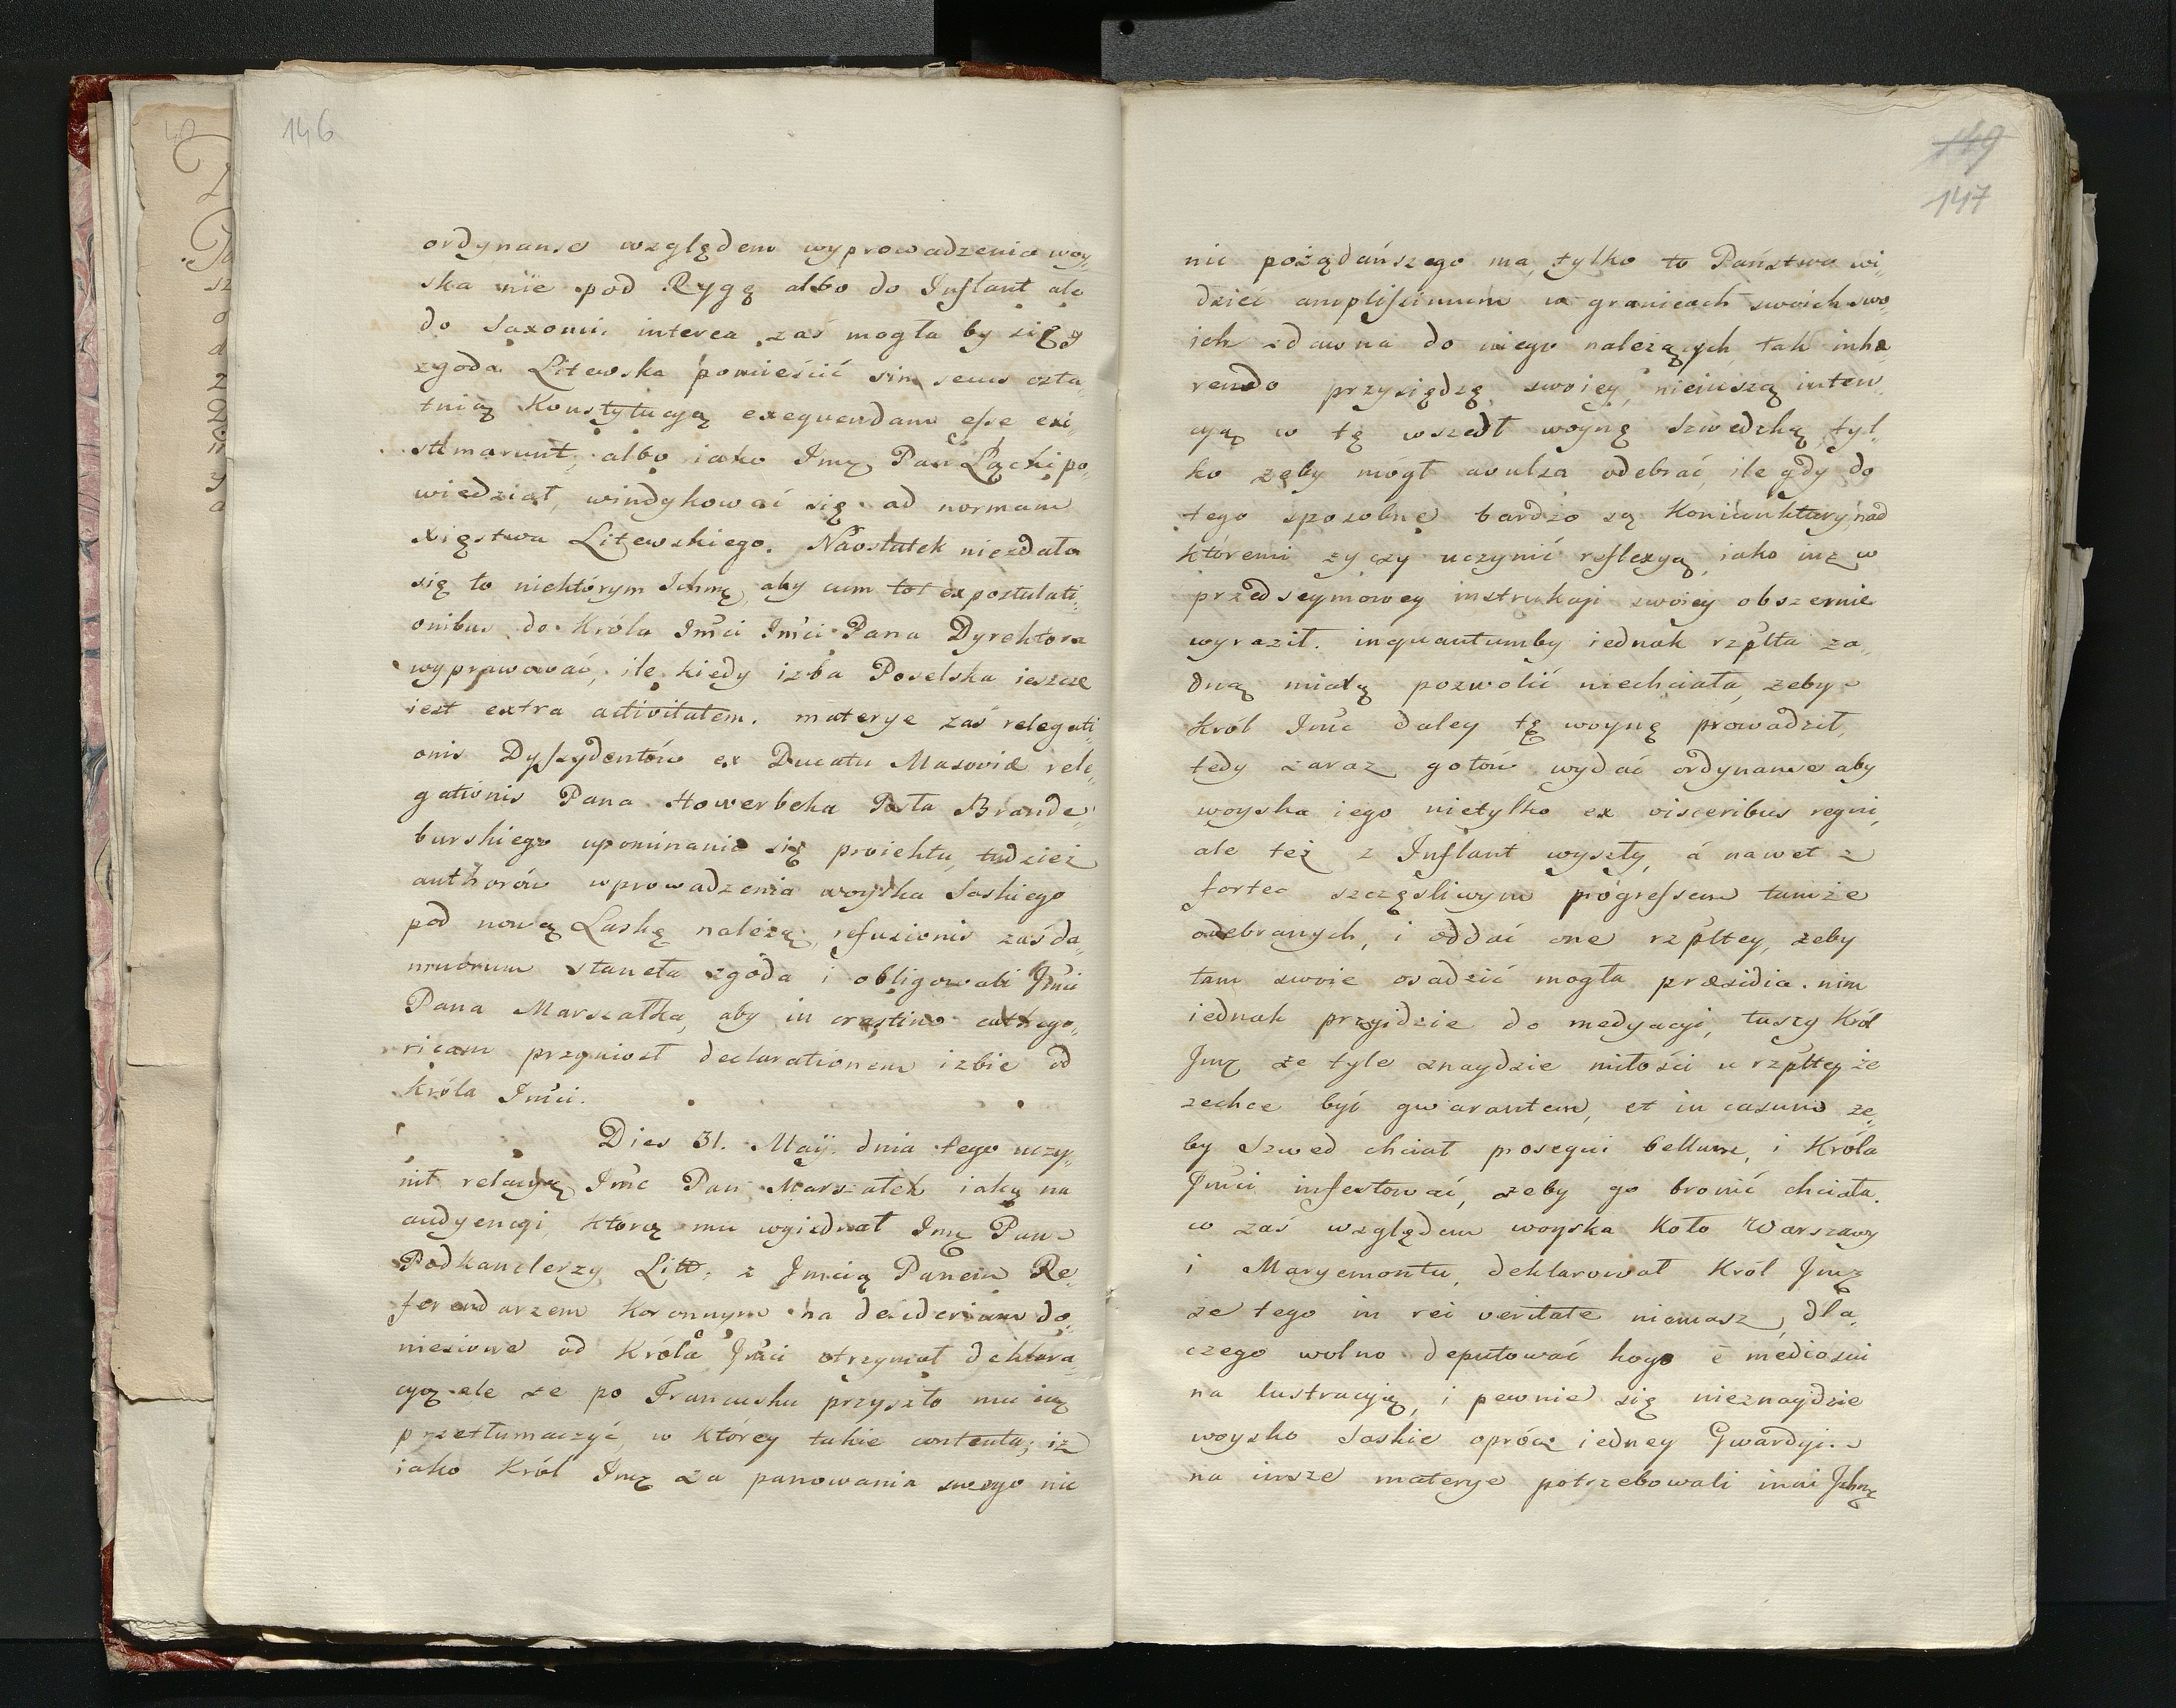 146
ordynanse względem wyprowadzenia woy„
ska nie pod Rygę albo do Inflant ale
do Saxonii. interea zaś mogła by się y
zgoda Litewska pomieścić sin secus osta„
tnią Konstytucyą exequendam esse exi„
stimarunt, albo iako Imę Pan Łącki po„
wiedział, windykować się ad normam
Xięstwa Litewskiego. Naostatek niezdało
się to niektórym Ichmę, aby cum tot expostulati„
onibus do Króla Imći Imći Pana Dyrektora
wyprawować, ile kiedy izba Poselska ieszcze
iest extra activitatem. materye zaś relegati„
onis Dyssydentów ex Ducatu Masoviæ rele„
gationis Pana Howerbeka Posła Brande„
burskiego upominanie się proiektu, tudzież
authorów wprowadzenia woyska Saskiego
pod nową Laskę należą, refusionis zaś da„
mnorum staneła zgoda i obligowali Jmći
Pana Marszałka, aby in crastino cathego„
ricam przyniosł declarationem izbie od
Króla Imći.
Dies 31. Maij. dnia tego uczy„
nił relacyą Imć Pan Marszałek iaką na
audyencyi, którą mu wyiednał Imę Pan
Podkanclerzy Litt. z Jmcią Panem Re„
ferendarzem Koronnym na desiderium do„
niesione od Króla Jmći otrzymał deklara„
cyą ale że po Francusku przyszło mu ią
przetłumaczyć, w którey takie contenta; iż
iako Król Imę za panowania swego nic
149
147
nic pożądańszego ma, tylko to Państwo wi„
dzieć amplissimum w granicach swoich swo„
ich zdawna do niego należących, tak inhæ„
rendo przysiędze swoiey, nieinszą inten„
cyą w tę wszedł woynę Szwedzką, tyl„
ko żeby mógł avulsa odebrać, ile gdy do
tego sposobne bardzo są Koniunktury, nad
któremi życzy uczynić reflexyą, iako iuż w
przedseymowey instrukcyi swoiey obszernie
wyraził. inquantumby iednak rzplta ża„
dną miarą pozwolić niechciała, żeby
Król Imć daley tę woynę prowadził,
tedy zaraz gotów wydać ordynanse aby
woyska iego nietylko ex visceribus regni,
ale też z Inflant wyszły, á nawet z
fortec szczęsliwym progressem tamże
odebranych, i oddać one rzpltey, żeby
tam swoie osadzić mogła præsidia. nim
iednak przyidzie do medyacyi, tuszy Król
Jmę że tyle znaydzie miłości u rzpltey że
zechce być gwarantem, et in casum że„
by Szwed chciał prosequi bellum, i Króla
Jmći infestować, żeby go bronić chciała.
co zaś względem woyska Koło Warszawy
i Maryemontu, deklarował Król Jmę
że tego in rei veritate niemasz, dla„
czego wolno deputować kogo è medio sui
na lustracyją, i pewnie się nieznaydzie
woysko Saskie oprócz iedney Gwardyi.
na insze materye potrzebowali inni Ichmę